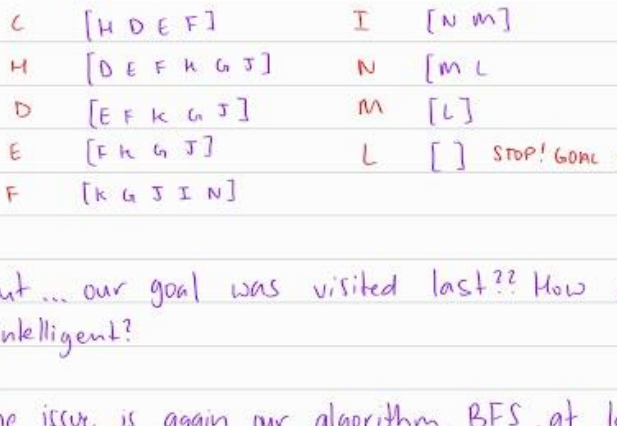 C [H D E F]
H [D E F K G J]
D [E F K G J]
E [F K G J]
F [K G J I N]
I [N M]
N [M L
M [L]
L [ ] STOP! GOAL
... our goal was visited last?? How
intelligent?
issue is again our algorithm. BFS, at